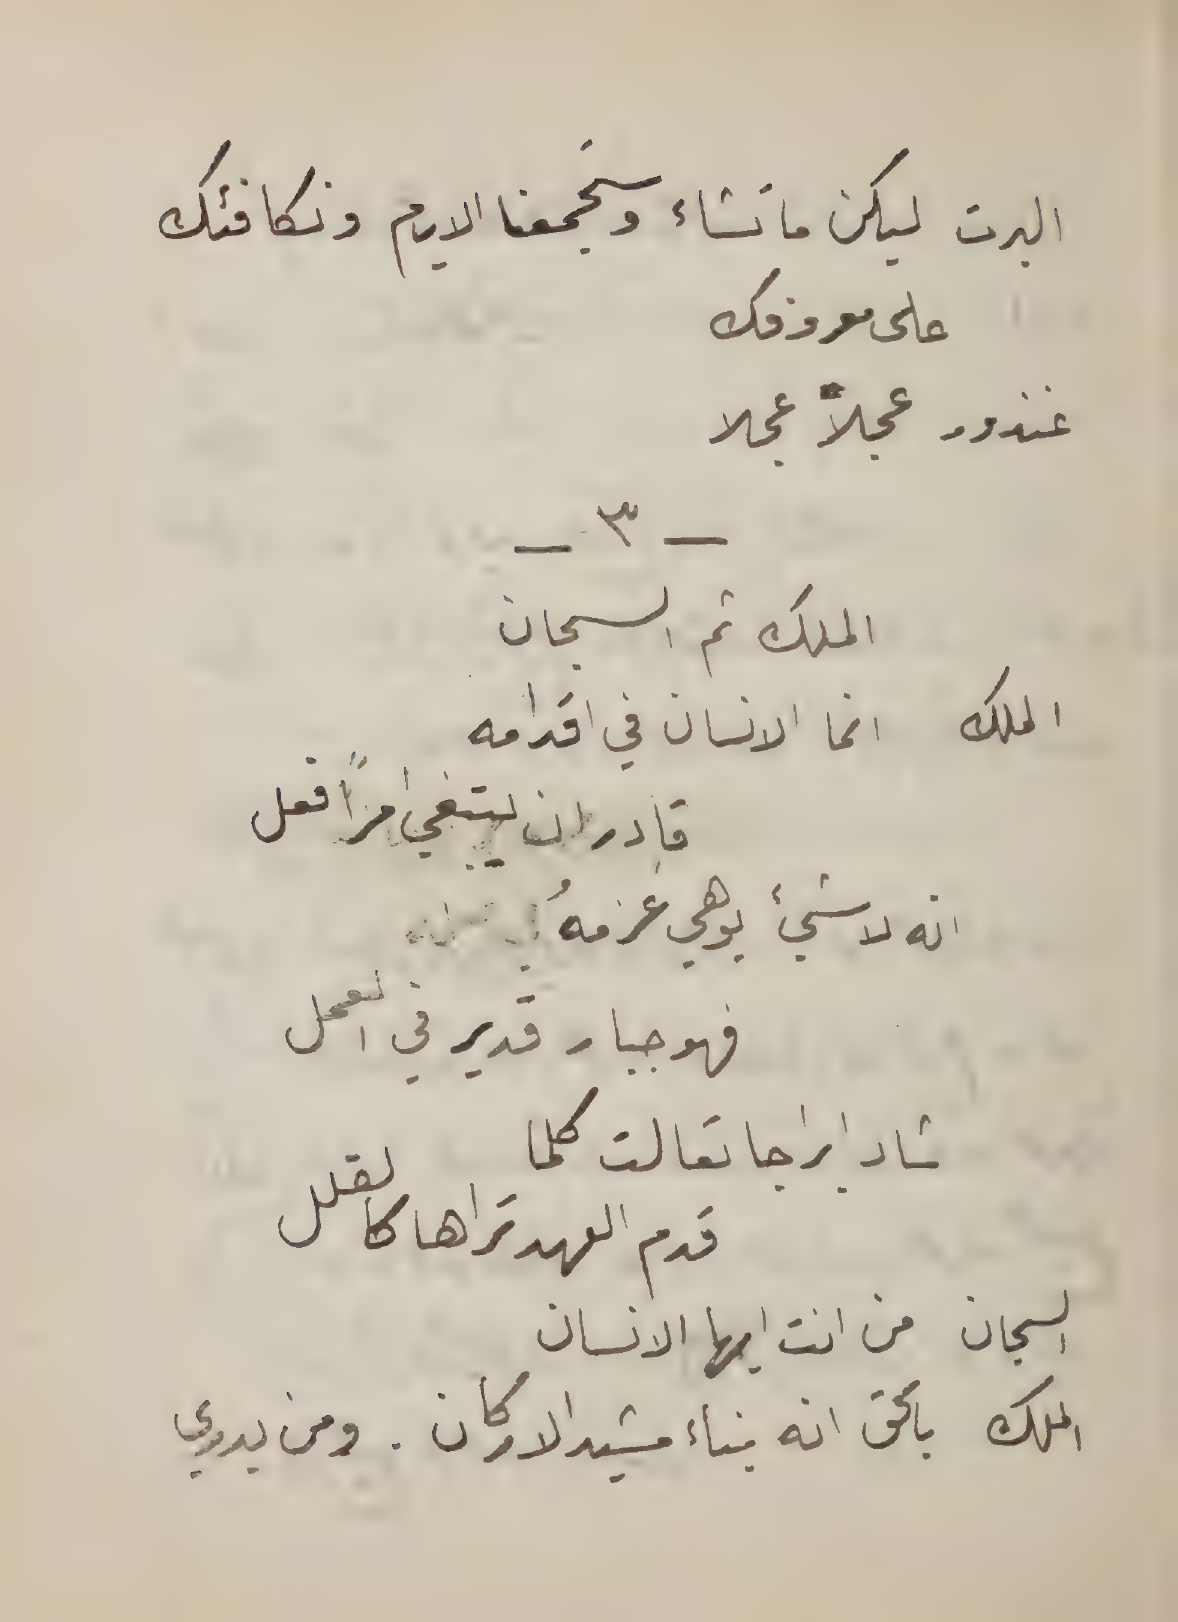 البرت ليكن ما تشاء وستجمعنا الايام ونكافئك
على معروفك
غندور عجلاً عجلا
— ٣ —
الملك ثم السجان
الملك انما الانسان في اقدامه
قادر ان يبتغي امراً فعل
انه لا شيئ يوهي عزمهُ
فهو جبار قدير في العمل
شاد ابراجا تعالت كلما
قدم العهد تراها كالقلل
السجان من انت ايها الانسان
الملك بالحق انه بناء مشيد الاركان . ومن يدري